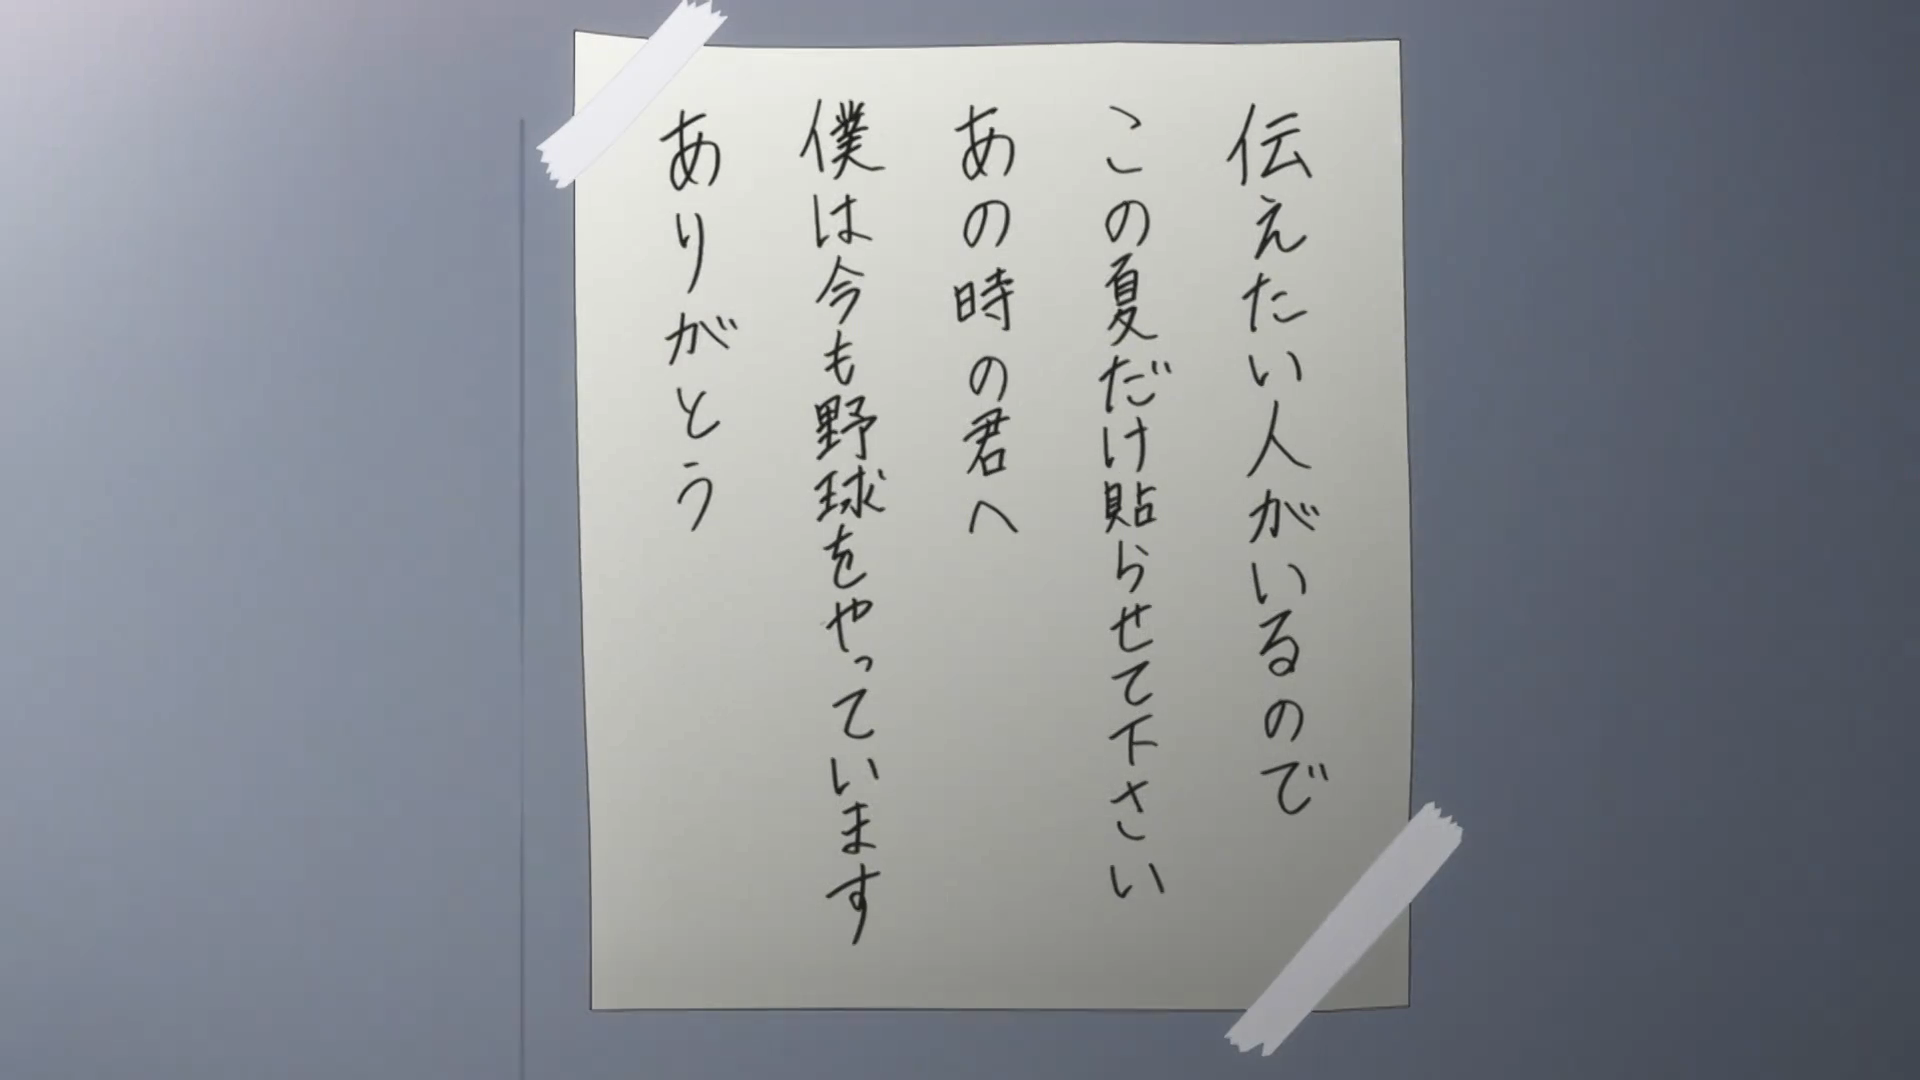 伝えたい人がいるので
この夏だけ貼らせて下さい
あの時の君へ
僕は今も野球をやっています
ありがとう